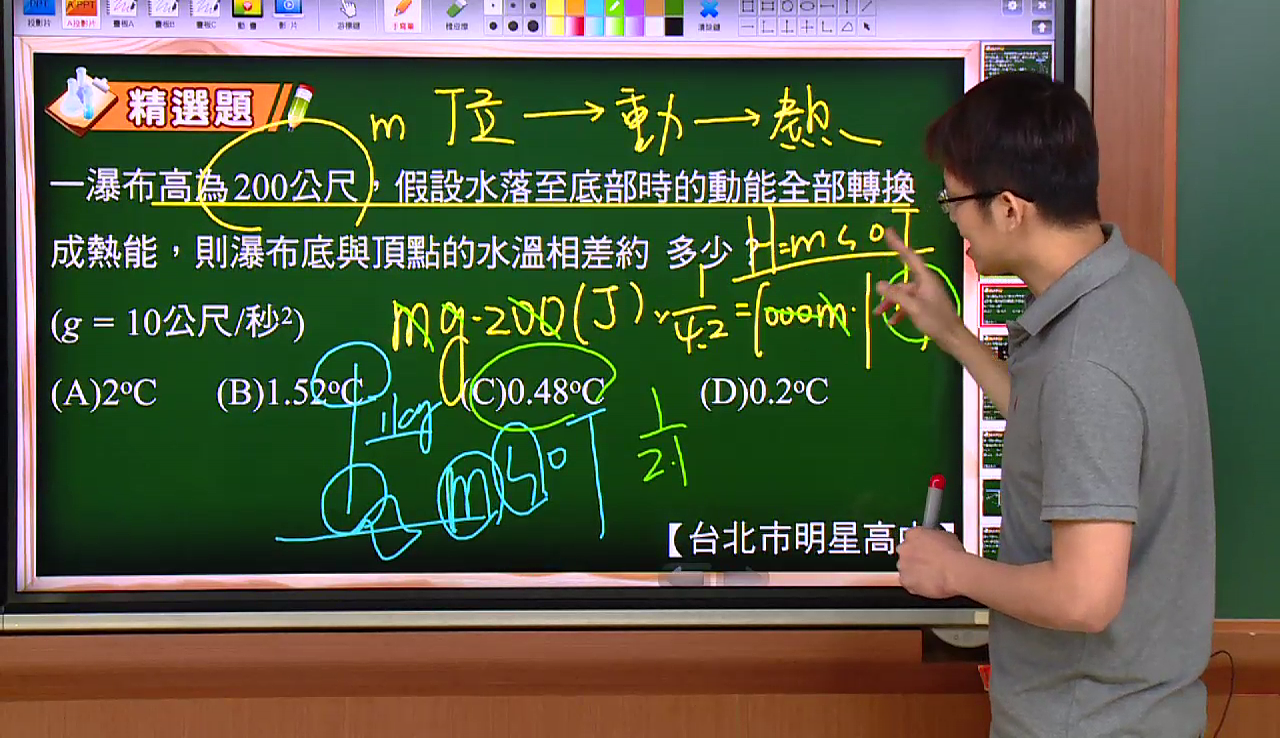 投影片 A投影片 畫板A 畫板B 畫板C 動畫 影片 游標鍵 手寫筆 橡皮擦 清除鍵
精選題
m 位→動→熱
一瀑布高為200公尺,假設水落至底部時的動能全部轉換
成熱能,則瀑布底與頂點的水溫相差約 多少?
H=msΔT
(g = 10公尺/秒²)
mg·200(J)×1/4.2=1000m·1
(A)2°C (B)1.52°C (C)0.48°C (D)0.2°C
1kg
msΔT
1/2.1
【台北市明星高中】